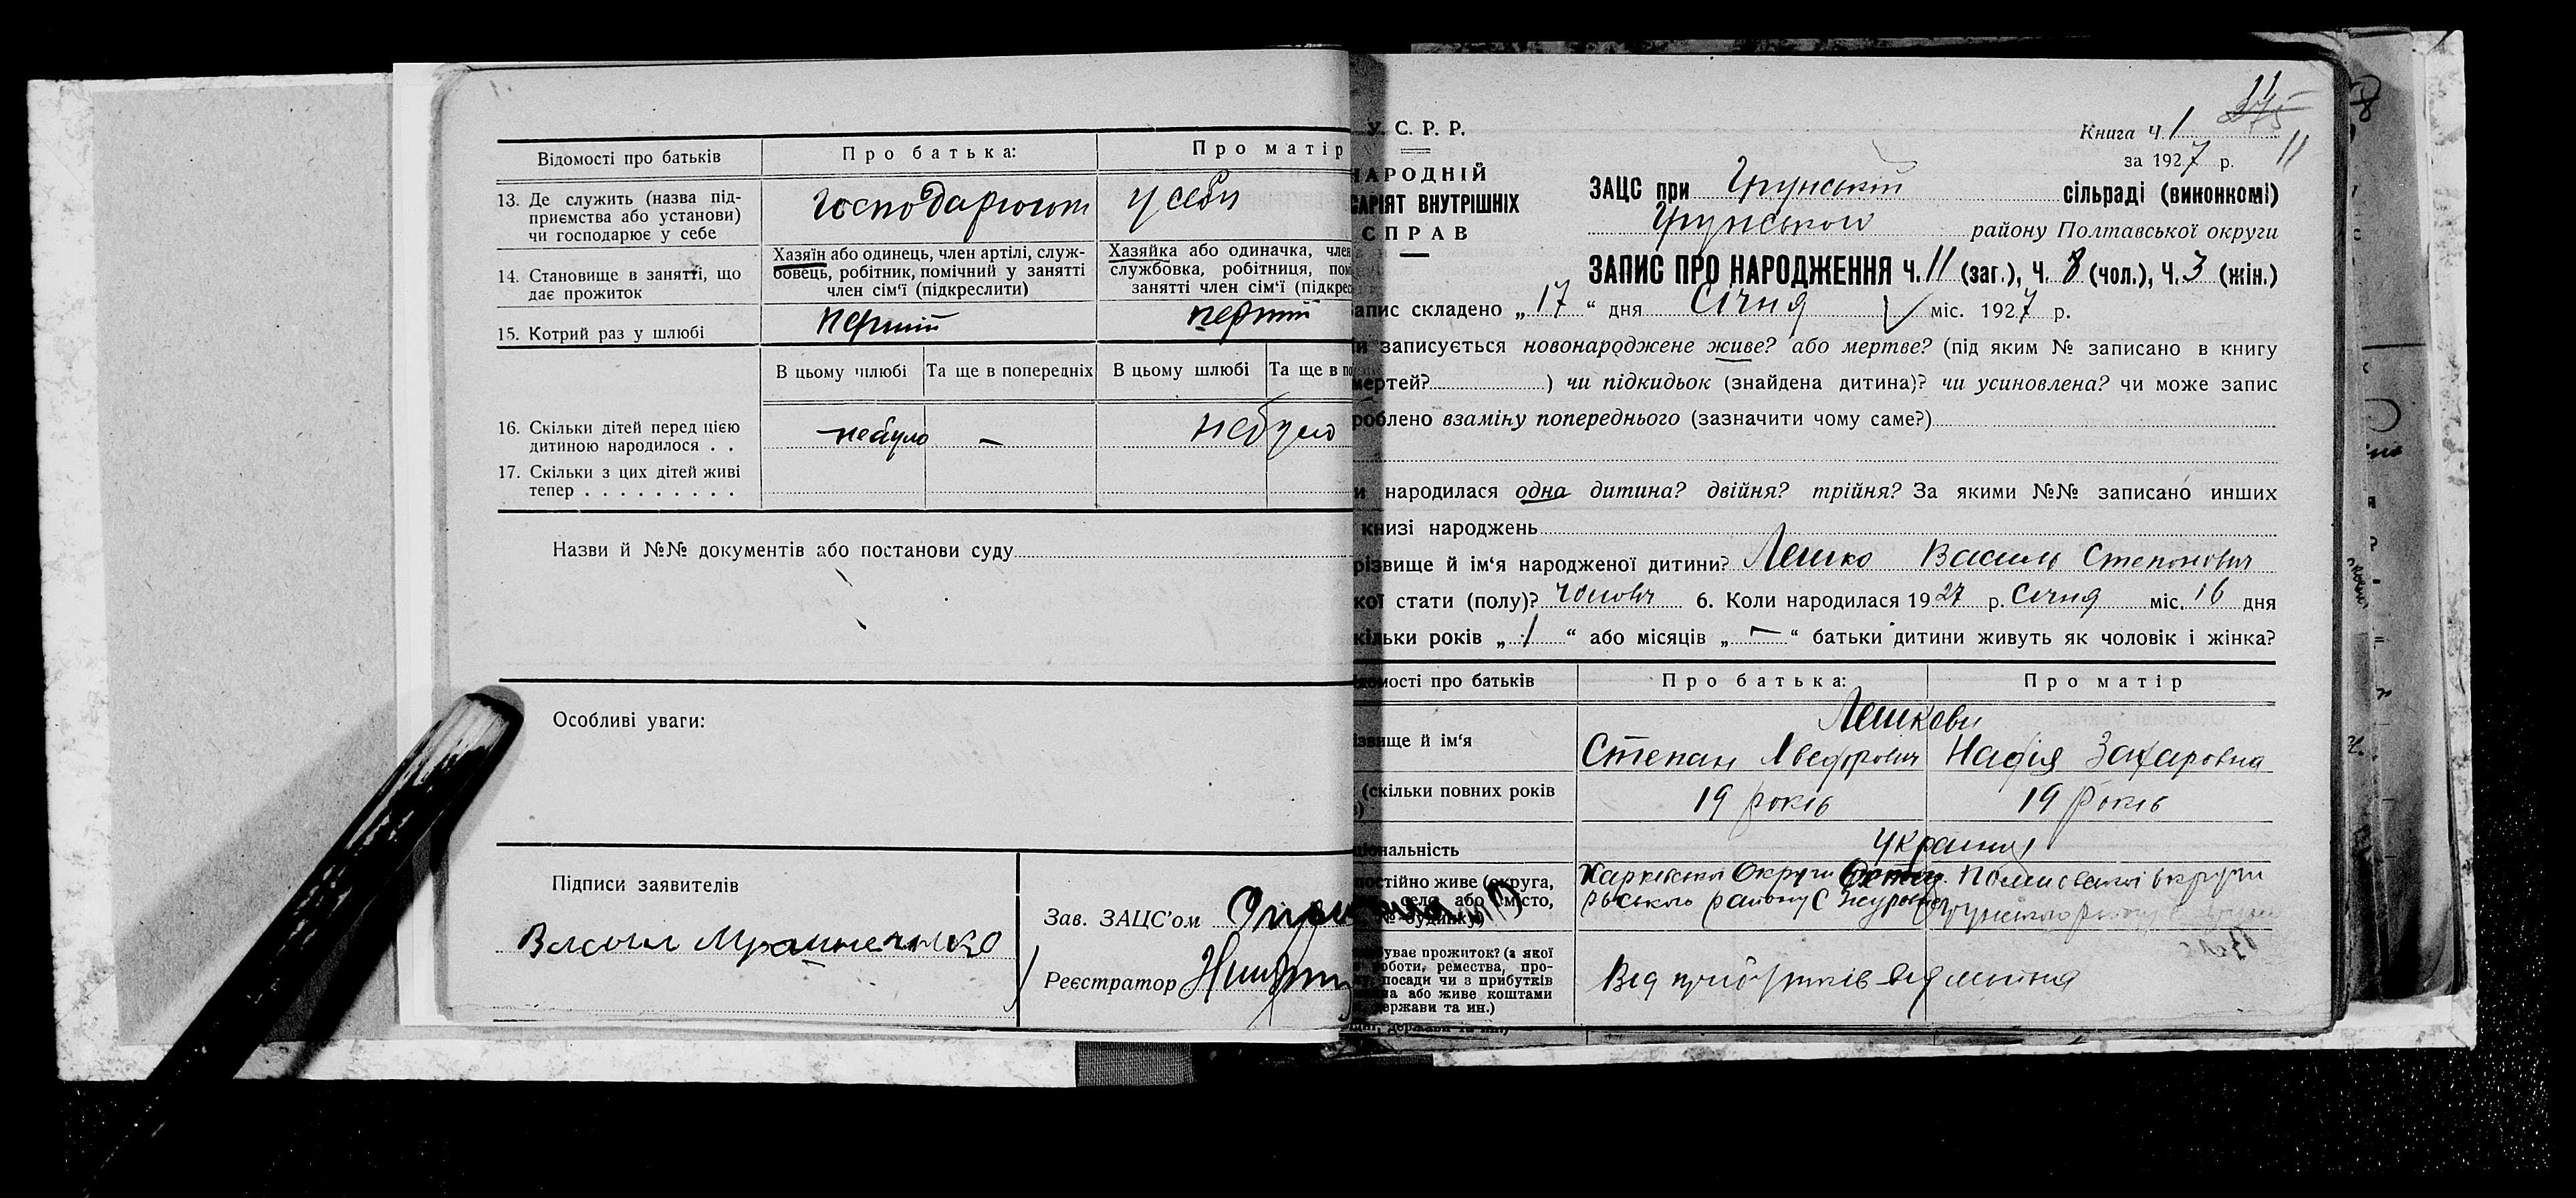 Відомості про батьків
Про батька:
Про матір
13. Де служить (назва під-
приємства або установи)
чи господарює у себе
господарюют у себя
14. Становище в занятті, що
дає прожиток
Хазяїн або одинець, член артілі, служ-
бовець, робітник, помічний у занятті
член сім'ї (підкреслити)
Хазяйка або одиначка, член
службовка, робітниця, пом
занятті член сім'ї (підкрес
15. Котрий раз у шлюбі
перший
перший
В цьому шлюбі
Та ще в попередніх
В цьому шлюбі
Та ще в по
16. Скільки дітей перед цією
дитиною народилося . .
небуло
—
небуло
17. Скільки з цих дітей живі
тепер . . . . . . . . .
Назви й №№ документів або постанови суду
Особливі уваги:
Підписи заявителів
Зав. ЗАЦС'ом
Реєстратор
11
275
Книга Ч. 1
за 1927 р.
11
У. С. Р. Р.
НАРОДНІЙ
САРІЯТ ВНУТРІШНІХ
СПРАВ
ЗАЦС при Грунській сільраді (виконкомі)
Грунськой району Полтавської округи
ЗАПИС ПРО НАРОДЖЕННЯ Ч. 11 (заг.), Ч. 8 (чол.), Ч. 3 (жін.)
апис складено „17“ дня Січня міс. 1927 р.
и записується новонароджене живе? або мертве? (під яким № записано в книгу
мертей? ) чи підкидьок (знайдена дитина)? чи усиновлена? чи може запис
роблено взаміну попереднього (зазначити чому саме?)
и народилася одна дитина? двійня? трійня? За якими №№ записано инших
книзі народжень
різвище й ім'я народженої дитини? Лешко Василь Степонович
кої стати (полу)? чоловіч 6. Коли народилася 1927 р. Січня міс. 16 дня
кільки років „1“ або місяців „—“ батьки дитини живуть як чоловік і жінка?
омості про батьків
Про батька:
Про матір
Лешкови
ізвище й ім'я
Степан
Надія Захаровна
(скільки повних років
19 років
19 років
ціональність
Українці
постійно живе (округа,
село або місто,
№ будинку)
Харківської Округи
району С
Полтавської округи
Грунського району
буває прожиток? (з якої
роботи, ремества, про-
посади чи з прибутків
на або живе коштами
держави та ин.)
Від